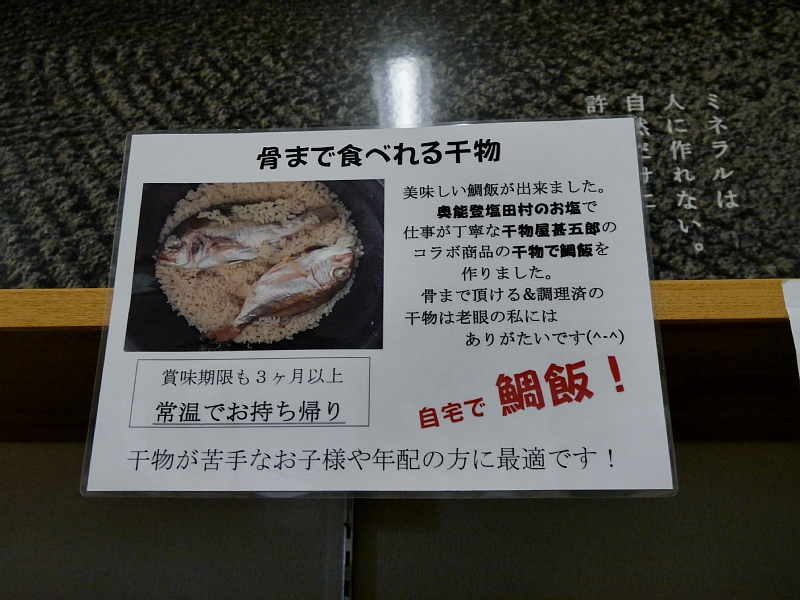 骨まで食べれる干物
美味しい鯛飯が出来ました。
奥能登塩田村のお塩で
仕事が丁寧な干物屋甚五郎の
コラボ商品の干物で鯛飯を
作りました。
骨まで頂ける&調理済の
干物は老眼の私には
ありがたいです(^-^)
自宅で 鯛飯！
賞味期限も３ヶ月以上
常温でお持ち帰り
干物が苦手なお子様や年配の方に最適です！
ミネラルは
人に作れない。
自然だけに
許